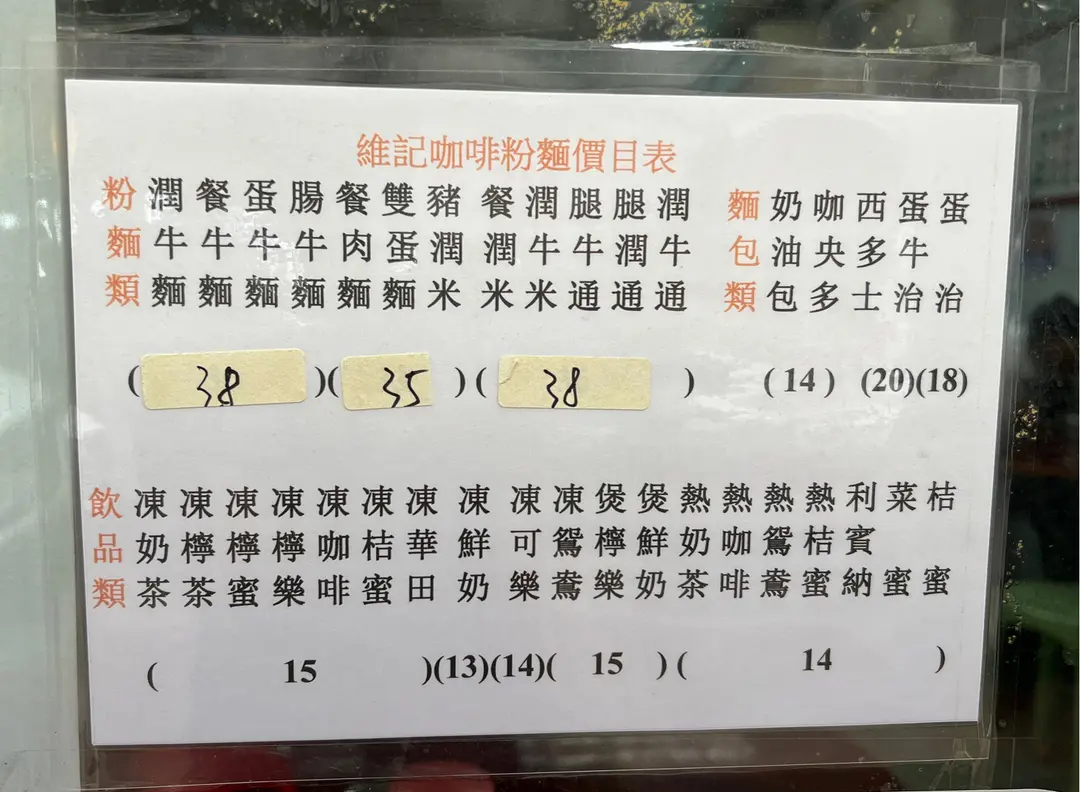 維記咖啡粉麵價目表
粉麵類
潤牛麵
餐牛麵
蛋牛麵
腸牛麵
餐肉麵
雙蛋麵
豬潤米
餐潤米
潤牛米
腿牛通
腿潤通
潤牛通
(38)(35)(38)
麵包類
奶油包
咖央多
西多士
蛋牛治
蛋治
(14) (20)(18)
飲品類
凍奶茶
凍檸茶
凍檸蜜
凍檸樂
凍咖啡
凍桔蜜
凍華田
凍鮮奶
凍可樂
凍鴛鴦
煲檸樂
煲鮮奶
熱奶茶
熱咖啡
熱鴛鴦
熱桔蜜
利賓納
菜蜜
桔蜜
(15)(13)(14)(15)(14)